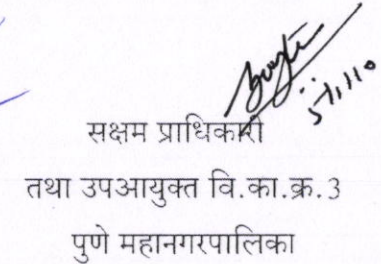 सक्षम प्राधिकारी
तथा उपआयुक्त वि.का.क्र.3
पुणे महानगरपालिका